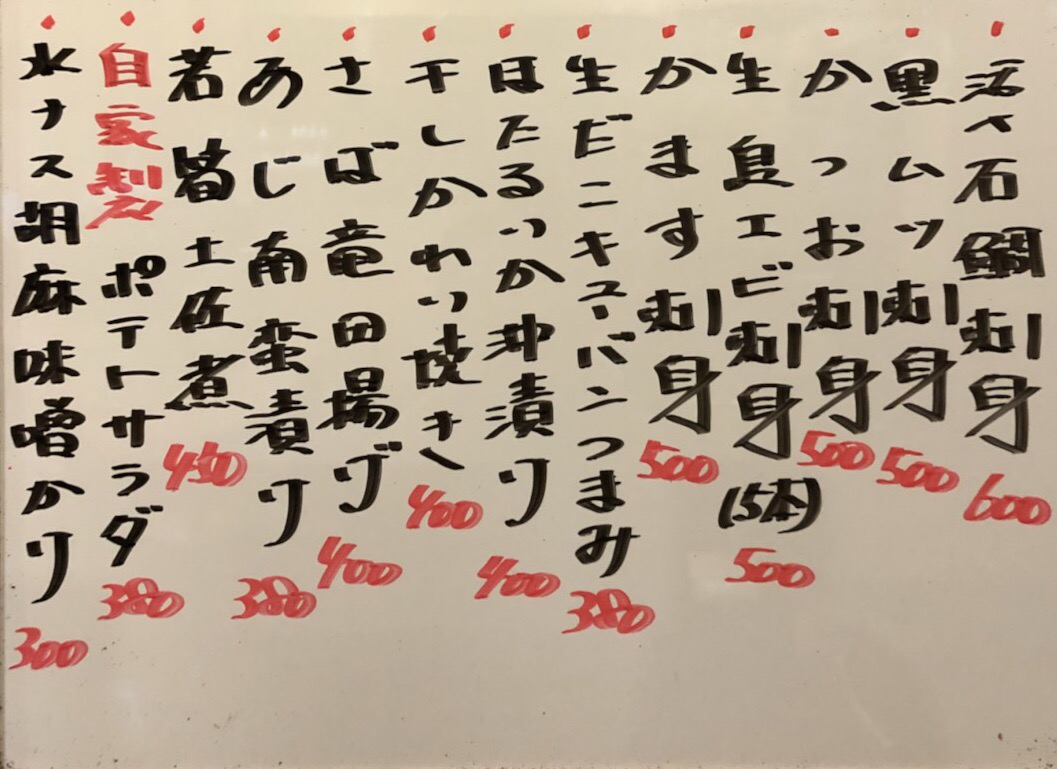 活〆石鯛刺身 600
黒ムツ刺身 500
かつお刺身 500
生島エビ刺身(5本) 500
かます刺身 500
生だこキューバンつまみ 380
ほたるいか沖漬け 400
干しかれい焼き 400
さば竜田揚げ 400
あじ南蛮漬け 380
若筍土佐煮 450
自家製ポテトサラダ 380
水ナス胡麻味噌かけ 300